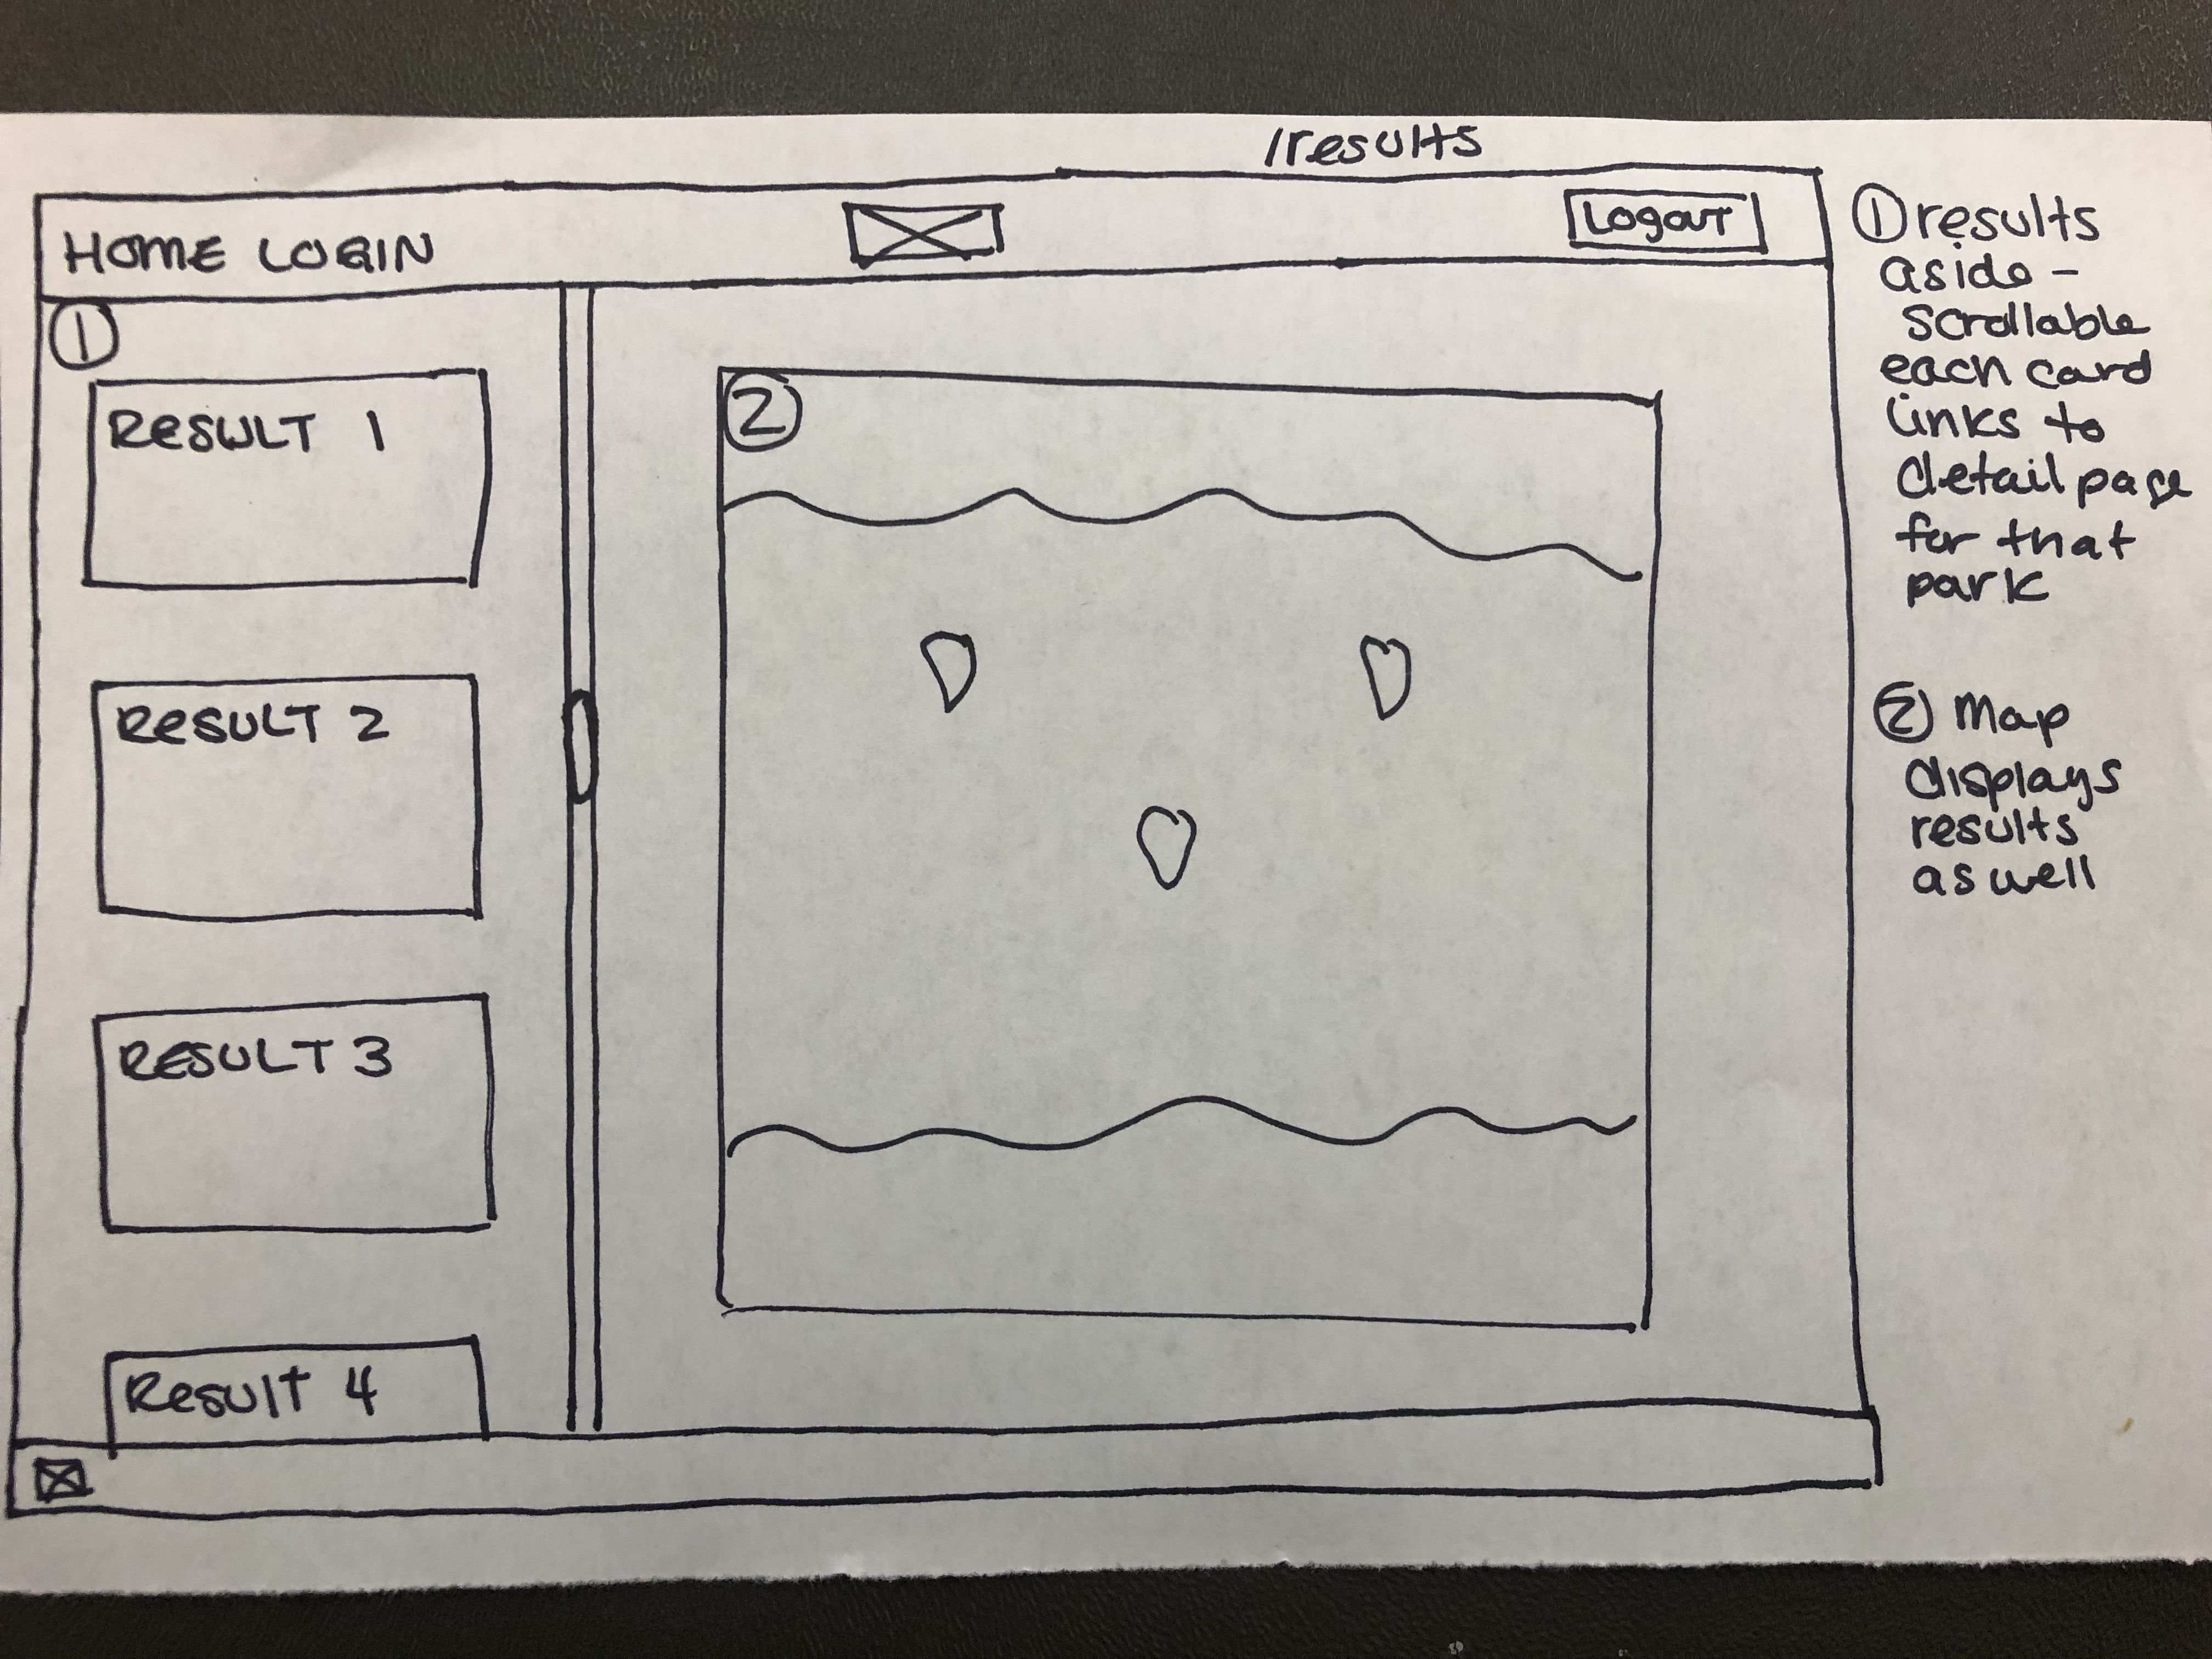 /results
HOME LOGIN
Logout
1
RESULT 1
RESULT 2
RESULT 3
Result 4
2
1 results
aside -
scrollable
each card
links to
detail page
for that
park
2 Map
displays
results
as well